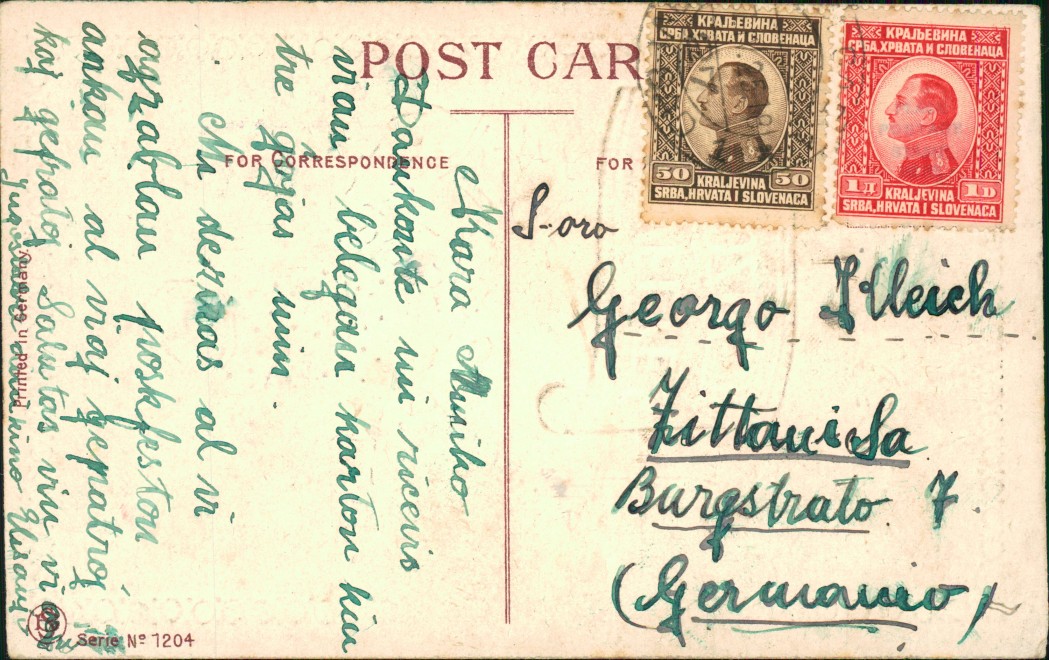 POST CAR
FOR CORRESPONDENCE
FOR
Kara Amiko
Dankante mi ricevis
vian belegan karton kiu
tre ĝojas min.
Mi deziras al vi
agrablan poskfeston
ankau al viaj gepatroj
kaj gefratoj Salutas vin via
kino
S-oro
Georgo
Zittau i Sa
Burgstrato 7
(Germanio)
КРАЉЕВИНА
СРБА, ХРВАТА И СЛОВЕНАЦА
50 50
KRALJEVINA
SRBA, HRVATA I SLOVENACA
КРАЉЕВИНА
СРБА, ХРВАТА И СЛОВЕНАЦА
1 Д 1 D
KRALJEVINA
SRBA, HRVATA I SLOVENACA
Printed in Germany
Serie No 1204